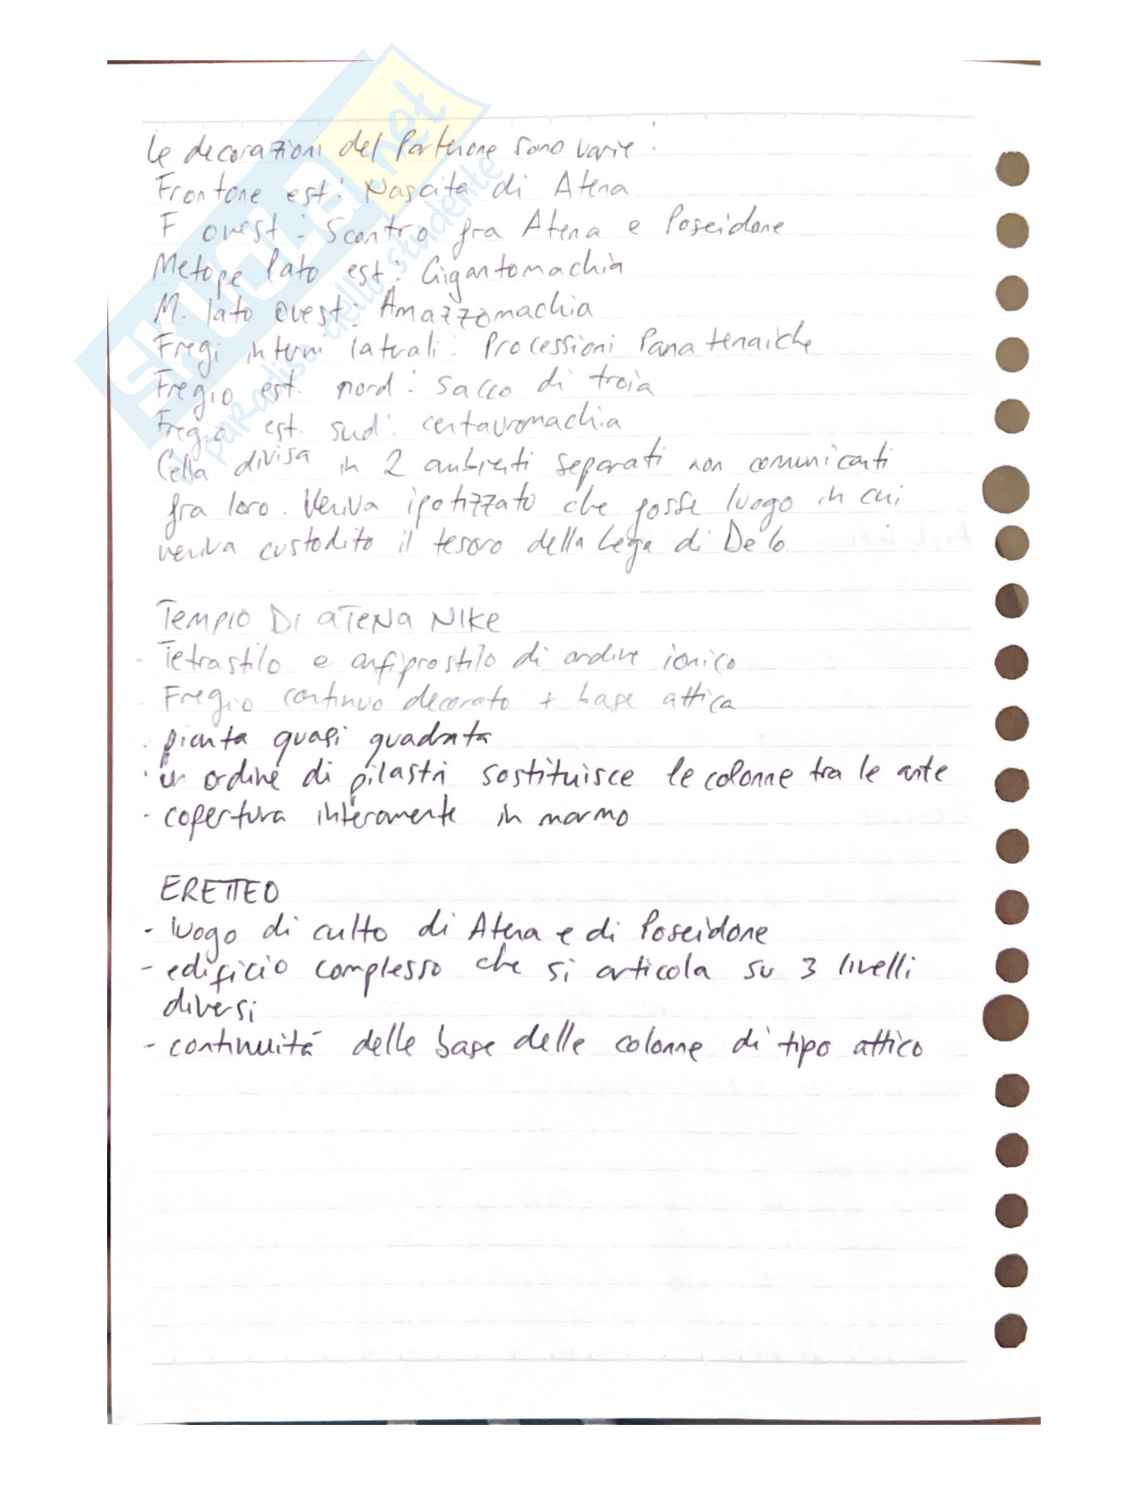 Le decorazioni del Partenone sono varie:
Frontone est: Nascita di Atena
F ovest: Scontro fra Atena e Poseidone
Metope lato est: Gigantomachia
M. lato Ovest: Amazzomachia
Fregi interni laterali: Processioni Panatenaiche
Fregio est. nord: Sacco di troia
Fregio est. sud: centauromachia
Cella divisa in 2 ambienti separati non comunicanti
fra loro. Veniva ipotizzato che fosse luogo in cui
veniva custodito il tesoro della Lega di Delo
TEMPIO DI ATENA NIKE
- Tetrastilo e anfiprostilo di ordine ionico
- Fregio continuo decorato + base attica
- pianta quasi quadrata
- un ordine di pilastri sostituisce le colonne tra le ante
- copertura interamente in marmo
ERETTEO
- luogo di culto di Atena e di Poseidone
- edificio complesso che si articola su 3 livelli
diversi
- continuità delle base delle colonne di tipo attico
SKUOLA.net
paradiso dello studente